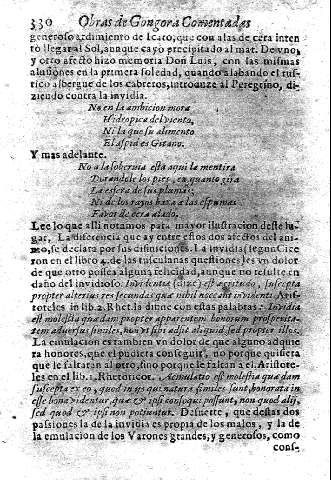 330 Obras de Gongora Comentadas
generoso ardimiento de Icaro, que con alas de cera inten
tò llegar al Sol, aunque cayò precipitado al mar. De vno,
y otro afecto hizo memoria Don Luis, con las mismas
alusiones en la primera soledad, quando alabando el rus-
tico albergue de los cabreros, introduze al Peregrino, di-
ziendo contra la invidia.
No en ti la ambicion mora
Hidropica del viento,
Ni la que su alimento
El aspid es Gitano.
Y mas adelante.
No a la soberuia està aqui la mentira
Dorandole los pies, en quanto gira
La esfera de sus plumas;
Ni de los rayos baxa a las espumas
Favor de cera alado.
Lee lo que alli notamos para mayor ilustracion deste lu-
gar. La diferencia que ay entre estos dos afectos del ani-
mo, se declara por las difiniciones. La invidia segun Cice
ron en el libro 4. de las tusculanas questiones les vn dolor
de que otro possea alguna felicidad, aunque no resulte en
daño del invidioso. Invidentia (dize) est ægritudo, suscepta
propter alterius res secundas quæ nihil noceant invidenti. Aris-
toteles in lib. 2. Rhet. la difine con estas palabras. Invidia
est molestia quædam propter apparentem bonorum prosperita-
tem adversus similes, non vt sibi adsit aliquid sed propter illos.
La emulacion es tambien vn dolor de que alguno adquie
ra honores, que el pudiera conseguir, no porque quisiera
que le faltaran al otro, sino porque le faltan a el. Aristote-
les en el lib. 2. Rhetoricor. Aemulatio est molestia quædam
suscepta ex eo, quod in ijs qui natura similes sunt, honorata in
esse bona videntur, quæ & ipsi consequi possunt, non quod alij,
sed quod & ipsi non potiuntur. De suerte, que destas dos
passiones la de la invidia es propia de los malos, y la de
la emulacion de los Varones grandes, y generosos, como
cons-